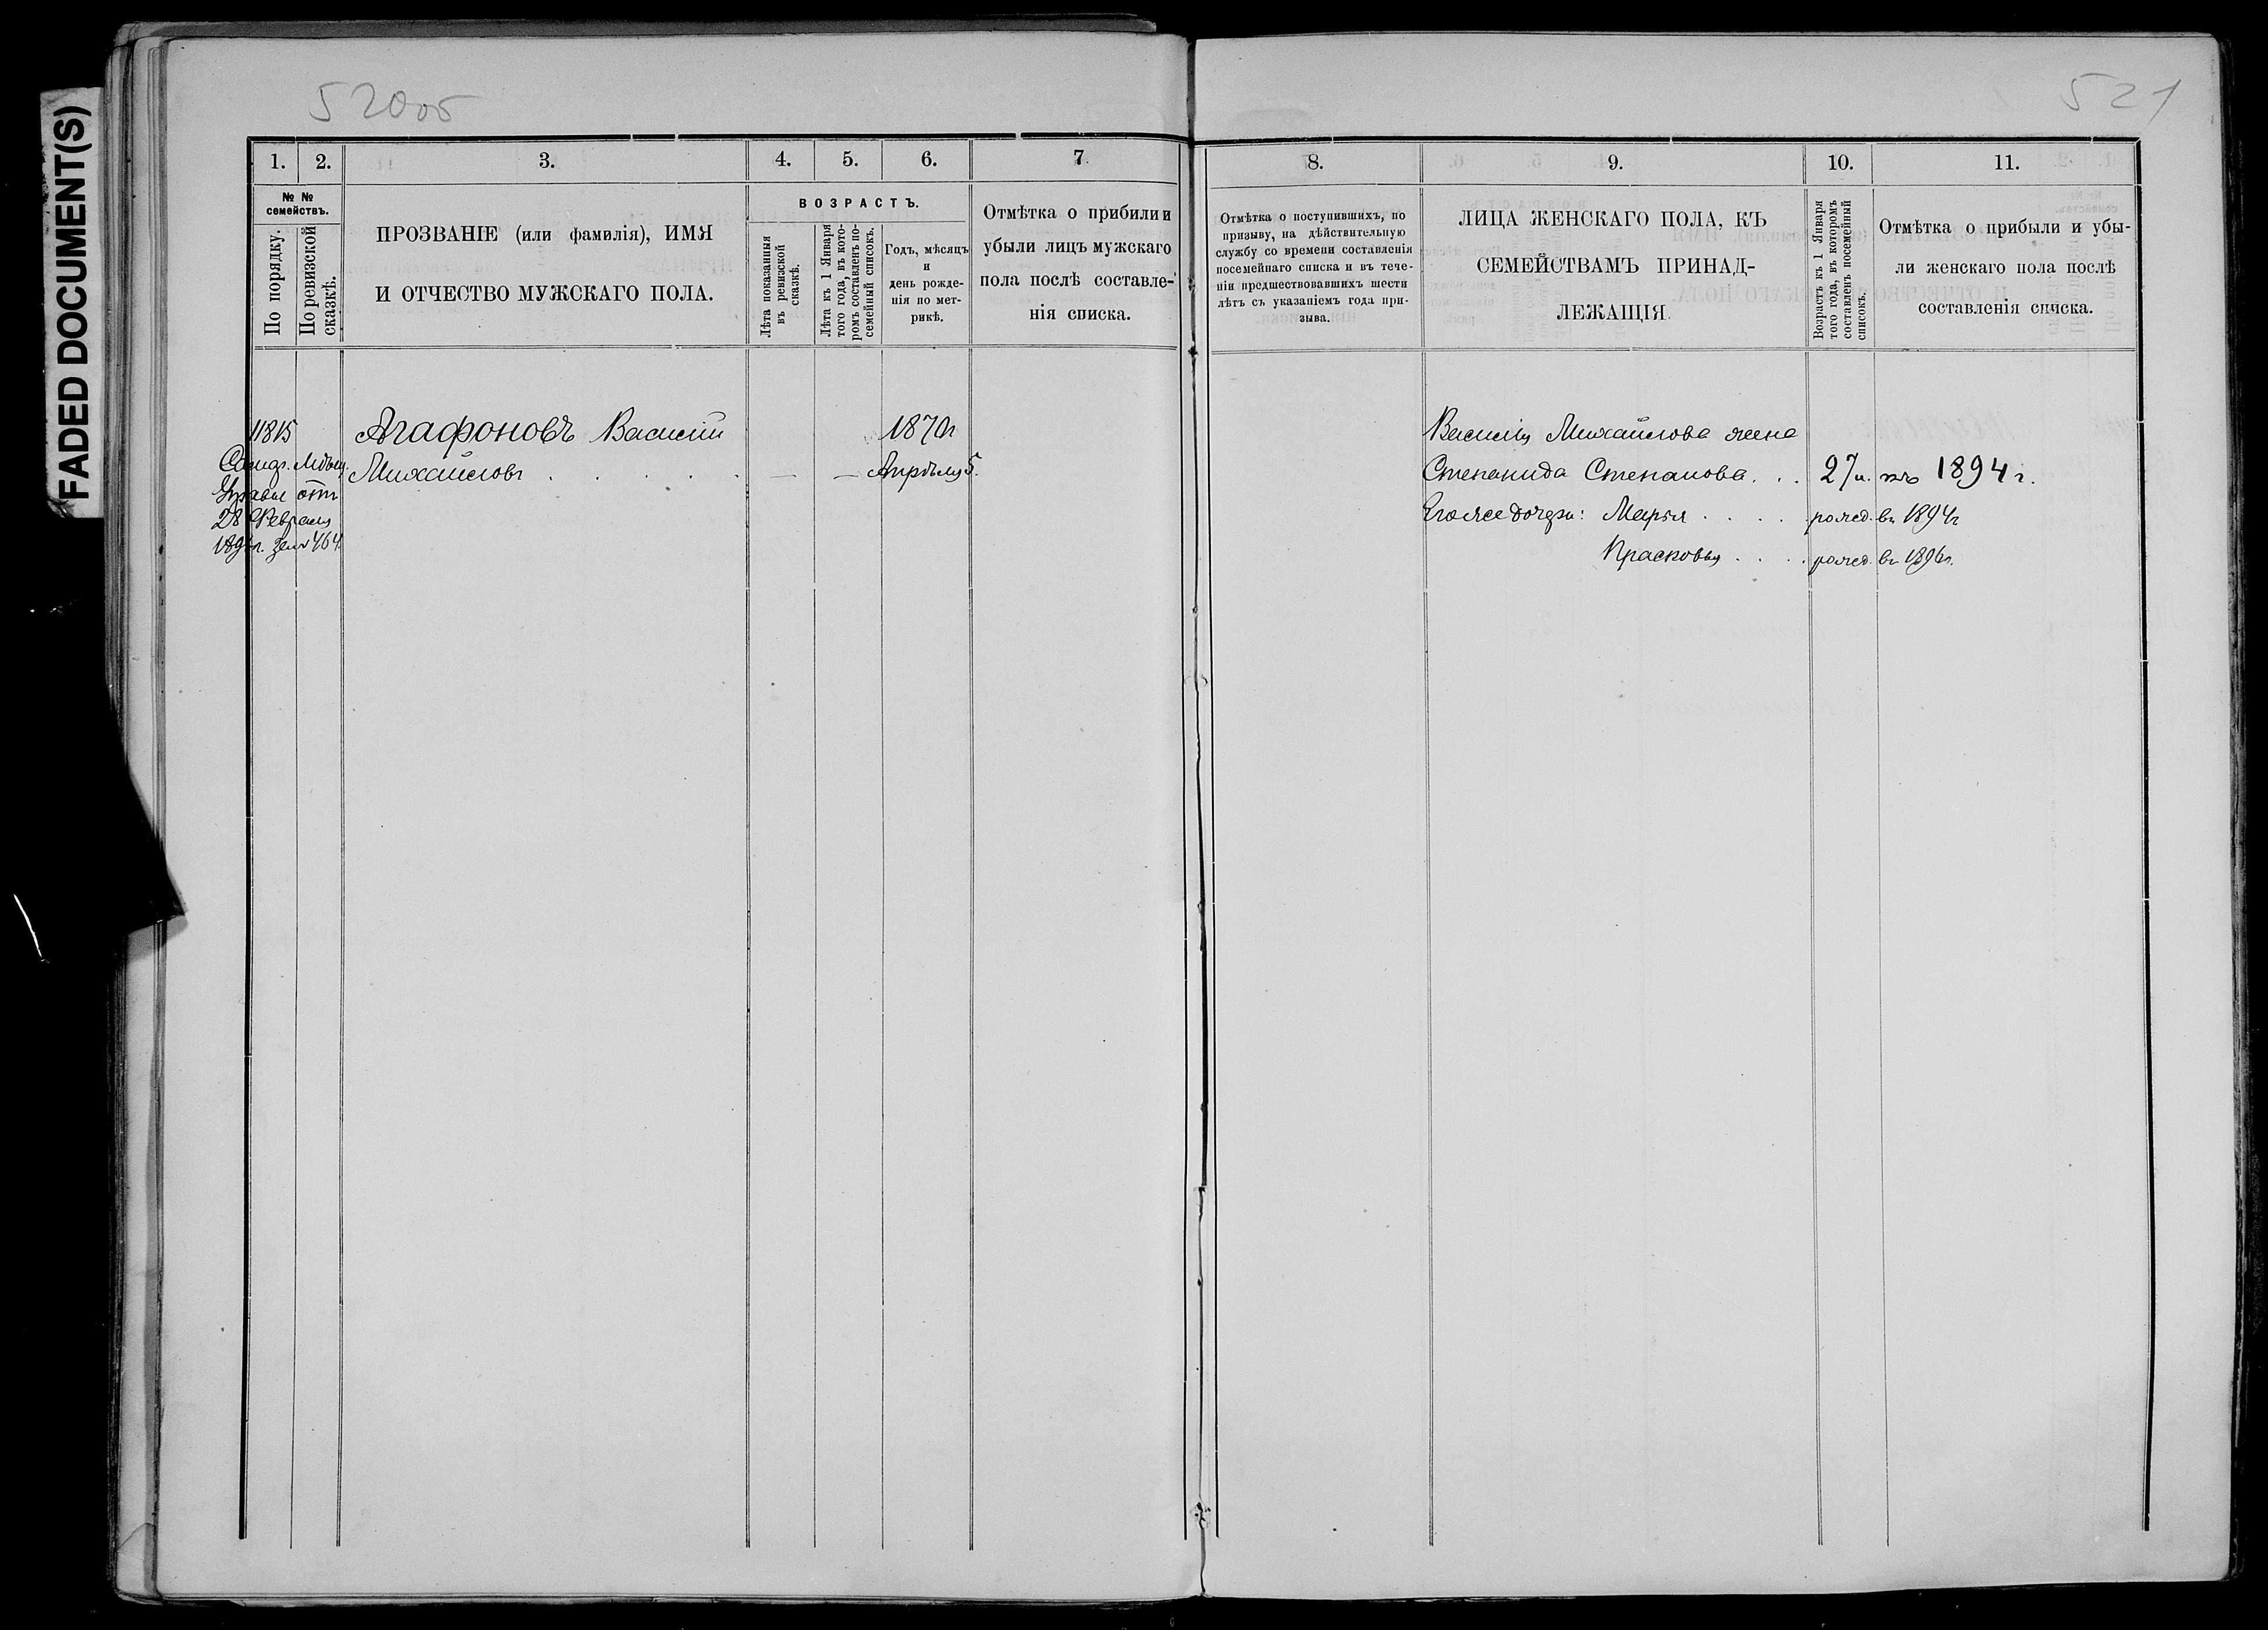 FADED DOCUMENT(S)
520об
521
1. 2. 3. 4. 5. 6. 7.
№ № семействъ.
По порядку.
По ревизской сказкѣ.
ПРОЗВАНІЕ (или фамилія), ИМЯ
И ОТЧЕСТВО МУЖСКАГО ПОЛА.
ВОЗРАСТЪ.
Лѣта показанныя
въ ревизской
сказкѣ.
Лѣта къ 1 Января
того года, въ кото-
ромъ составленъ по-
семейный списокъ.
Годъ, мѣсяцъ
и
день рожде-
нія по мет-
рикѣ.
Отмѣтка о прибили и
убыли лицъ мужскаго
пола послѣ составле-
нія списка.
8. 9. 10. 11.
Отмѣтка о поступившихъ, по
призыву, на дѣйствительную
службу со времени составленія
посемейнаго списка и въ тече-
ніи предшествовавшихъ шести
лѣтъ съ указаніемъ года при-
зыва.
ЛИЦА ЖЕНСКАГО ПОЛА, КЪ
СЕМЕЙСТВАМЪ ПРИНАД-
ЛЕЖАЩІЯ.
Возрастъ къ 1 Января
того года, въ которомъ
составленъ посемейный
списокъ.
Отмѣтка о прибыли и убы-
ли женскаго пола послѣ
составленія списка.
11815 Агафоновъ Василій 1870г
Михайловъ . . . . . — — Апрѣля 5.
Управы отъ
28 Февраля
464
Василія Михайлова жена
Степанида Степанова . . . 27 л. къ 1894 г.
Его же дочери: Марья . . . . рожд. въ 1894г
Прасковья . . . . рожд. въ 1896г.